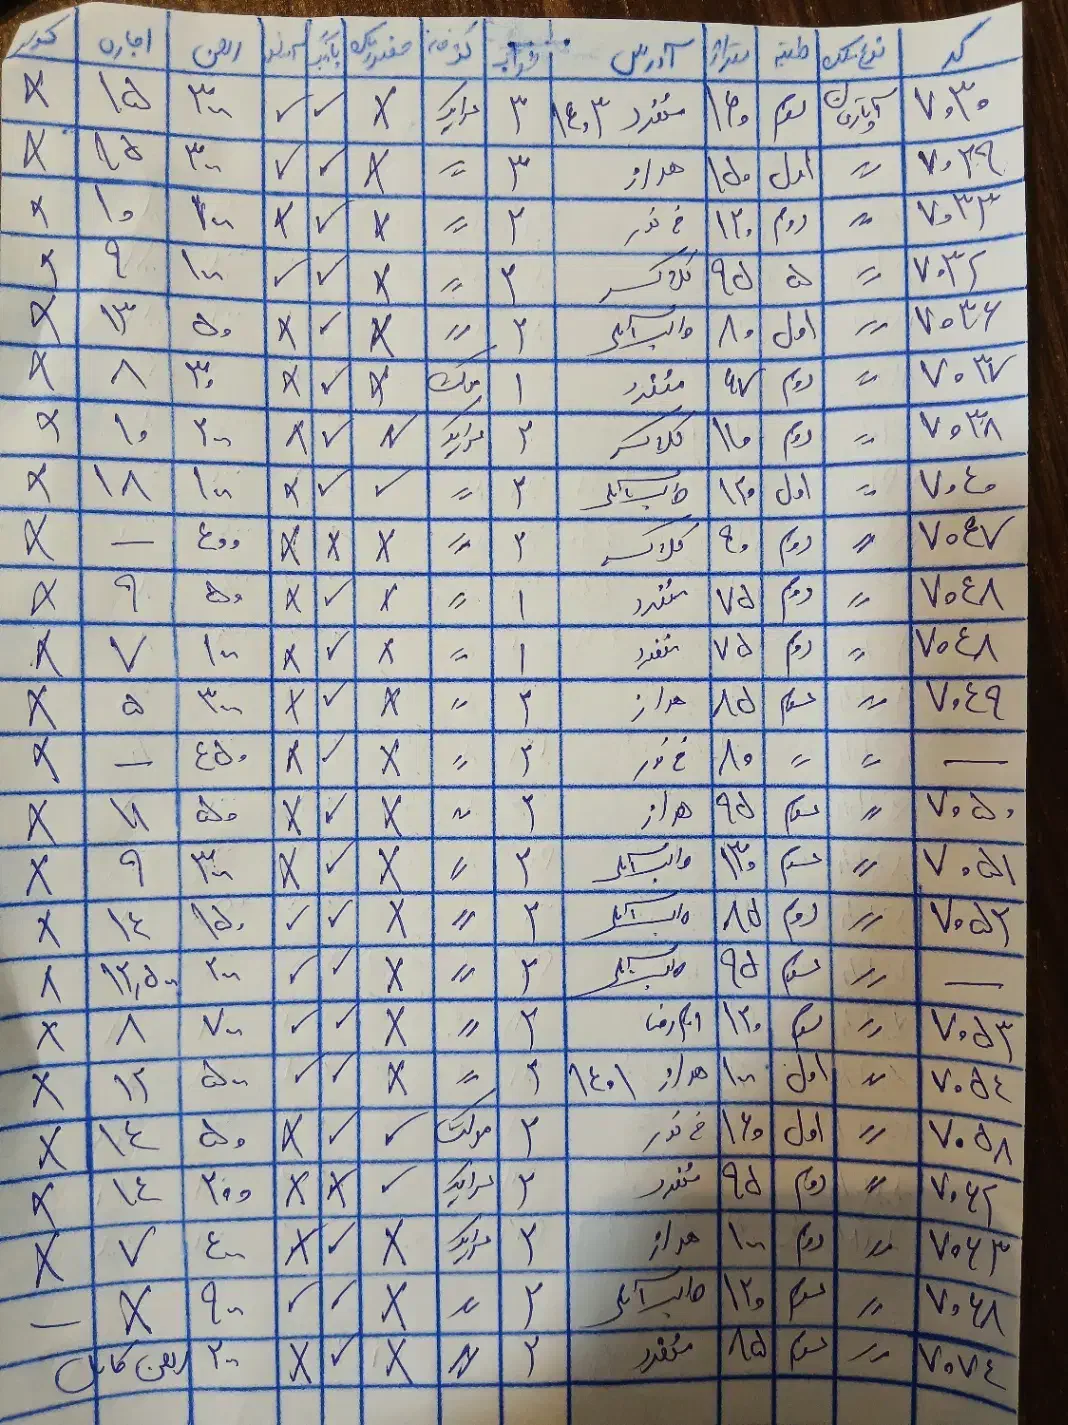 کد نوع ملک طبقه متراژ آدرس خواب کفپوش مستر پارکینگ آسانسور رهن اجاره
۷۰۳۰ آپارتمان سوم ۱۶۰ منفرد ۱۴۰۳ ۳ سرامیک X ✓ ✓ ۳۰۰ ۱۵ X
۷۰۲۹ // اول ۱۵۰ هراز ۳ // X ✓ ✓ ۳۰۰ ۲۵ X
۷۰۳۳ // دوم ۱۲۰ خ نور ۲ // X ✓ X ۲۰۰ ۱۰ X
۷۰۳۲ // ۵ ۹۵ کلاکسر ۲ // X ✓ ✓ ۱۰۰ ۹ X
۷۰۳۶ // اول ۸۰ طالب آملی ۲ // X ✓ X ۵۰ ۱۳ X
۷۰۳۷ // دوم ۶۷ منفرد ۱ موکت X ✓ X ۳۰ ۸ X
۷۰۳۸ // دوم ۱۱۰ کلاکسر ۲ سرامیک X ✓ X ۲۰۰ ۱۰ X
۷۰۴۰ // اول ۱۳۰ طالب آملی ۲ // ✓ ✓ X ۱۰۰ ۱۸ X
۷۰۴۷ // دوم ۹۰ کلاکسر ۲ // X X X ۴۰۰ — X
۷۰۴۸ // دوم ۷۵ منفرد ۱ // X ✓ X ۵۰ ۹ X
۷۰۴۸ // دوم ۷۵ منفرد ۱ // X ✓ X ۱۰۰ ۷ X
۷۰۴۹ // سوم ۸۵ هراز ۲ // X ✓ X ۳۰۰ ۵ X
— // // ۸۰ خ نور ۲ // X ✓ X ۴۵۰ — X
۷۰۵۰ // سوم ۹۵ هراز ۲ // X ✓ X ۵۰ ۱۱ X
۷۰۵۱ // سوم ۱۳۰ طالب آملی ۲ // X ✓ X ۳۰۰ ۹ X
۷۰۵۲ // دوم ۸۵ طالب آملی ۲ // X ✓ ✓ ۱۵۰ ۱۴ X
— // سوم ۹۵ طالب آملی ۲ // X ✓ ✓ ۲۰۰ ۱۲,۵۰۰ X
۷۰۵۳ // سوم ۱۲۰ امام رضا ۲ // X ✓ ✓ ۷۰۰ ۸ X
۷۰۵۴ // اول ۱۰۰ هراز ۱۴۰۱ ۲ // X ✓ ✓ ۵۰۰ ۱۲ X
۷۰۵۸ // اول ۱۶۰ خ نور ۲ موکت ✓ ✓ X ۵۰ ۱۴ X
۷۰۶۲ // دوم ۹۵ منفرد ۲ سرامیک ✓ X X ۲۰۰ ۱۴ X
۷۰۶۳ // دوم ۱۰۰ هراز ۲ سرامیک X ✓ X ۴۰۰ ۷ X
۷۰۶۸ // سوم ۱۲۰ طالب آملی ۲ // X ✓ ✓ ۹۰۰ X —
۷۰۷۴ // سوم ۸۵ منفرد ۲ // X ✓ X ۲۰۰ رهن کامل